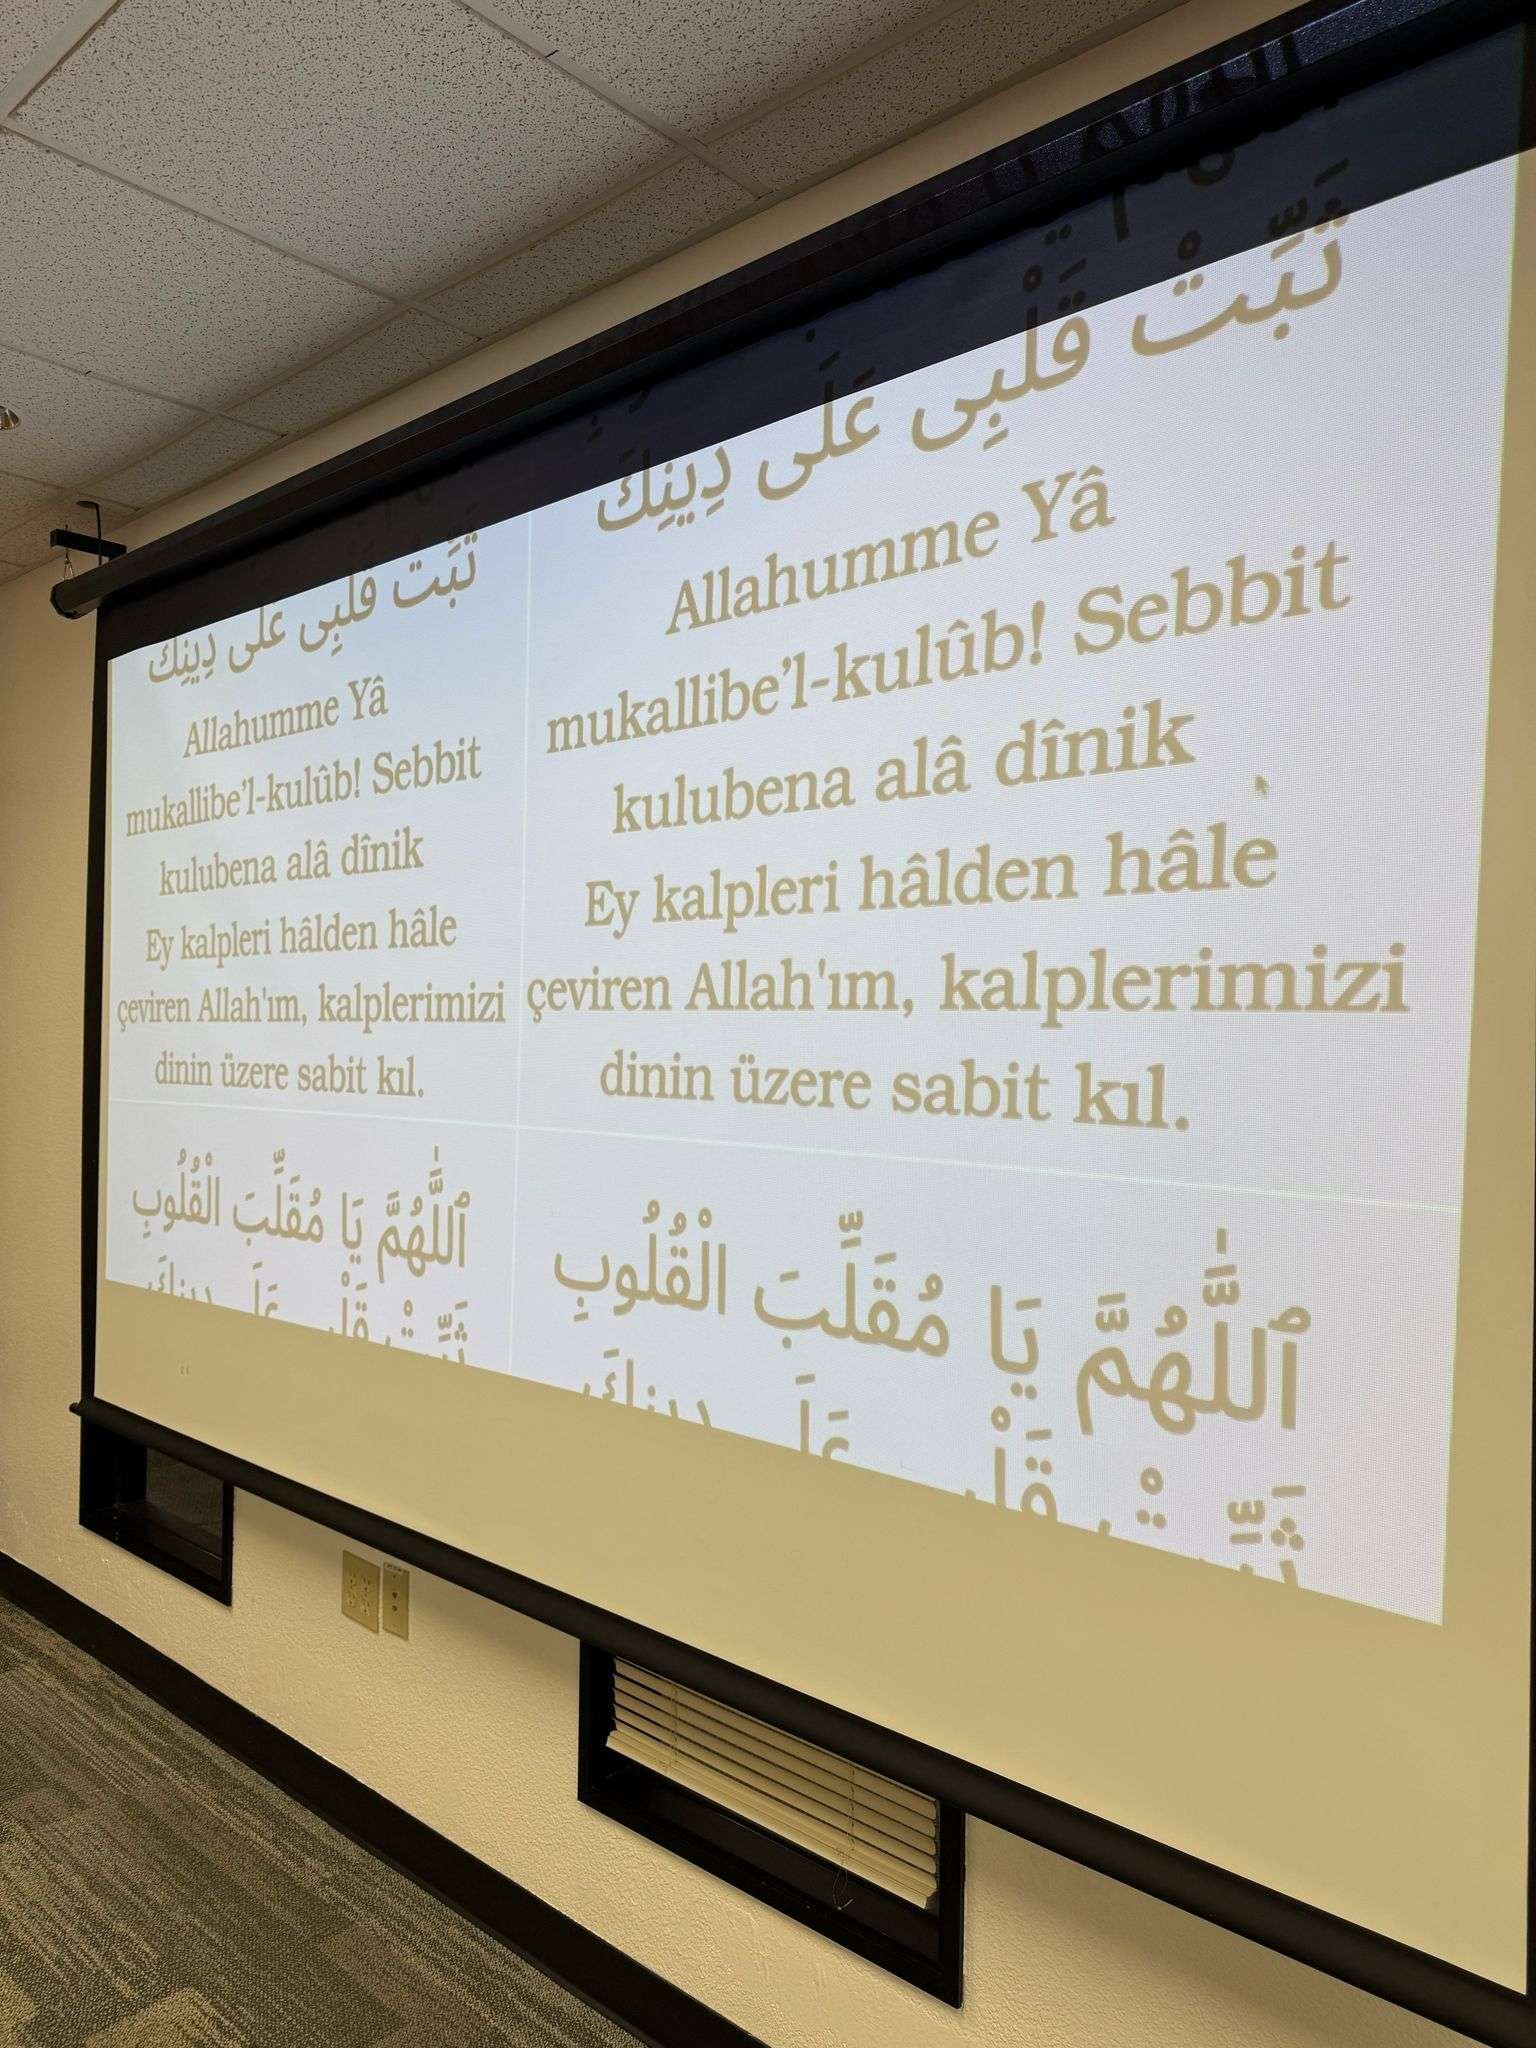 ثَبِّتْ قَلْبِى عَلَى دِينِكَ
Allahumme Yâ
mukallibe'l-kulûb! Sebbit
kulubena alâ dînik
Ey kalpleri hâlden hâle
çeviren Allah'ım, kalplerimizi
dinin üzere sabit kıl.
ٱللَّٰهُمَّ يَا مُقَلِّبَ الْقُلُوبِ
ثَبِّتْ قَلْبِى عَلَى دِينِكَ
Allahumme Yâ
mukallibe’l-kulûb! Sebbit
kulubena alâ dînik
Ey kalpleri hâlden hâle
çeviren Allah'ım, kalplerimizi
dinin üzere sabit kıl.
ٱللَّٰهُمَّ يَا مُقَلِّبَ الْقُلُوبِ